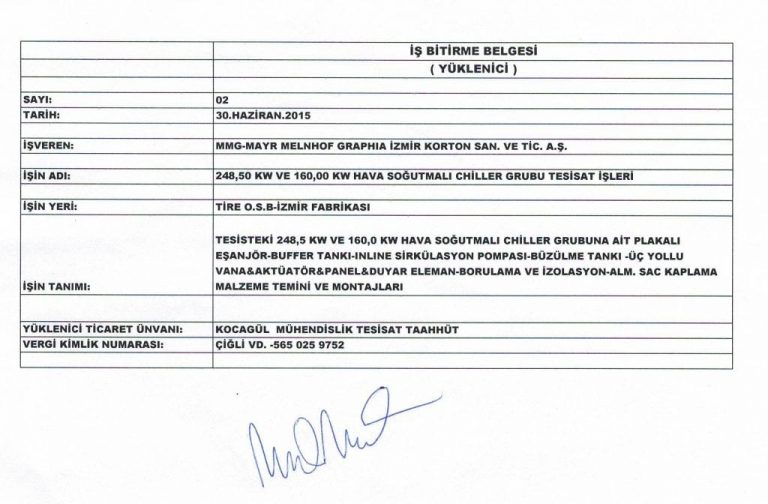 İŞ BİTİRME BELGESİ
( YÜKLENİCİ )
SAYI: 02
TARİH: 30.HAZİRAN.2015
İŞVEREN: MMG-MAYR MELNHOF GRAPHIA İZMİR KORTON SAN. VE TİC. A.Ş.
İŞİN ADI: 248,50 KW VE 160,00 KW HAVA SOĞUTMALI CHİLLER GRUBU TESİSAT İŞLERİ
İŞİN YERİ: TİRE O.S.B-İZMİR FABRİKASI
TESİSTEKİ 248,5 KW VE 160,0 KW HAVA SOĞUTMALI CHİLLER GRUBUNA AİT PLAKALI
EŞANJÖR-BUFFER TANKI-INLINE SİRKÜLASYON POMPASI-BÜZÜLME TANKI -ÜÇ YOLLU
VANA&AKTÜATÖR&PANEL&DUYAR ELEMAN-BORULAMA VE İZOLASYON-ALM. SAC KAPLAMA
İŞİN TANIMI: MALZEME TEMİNİ VE MONTAJLARI
YÜKLENİCİ TİCARET ÜNVANI: KOCAGÜL MÜHENDİSLİK TESİSAT TAAHHÜT
VERGİ KİMLİK NUMARASI: ÇİĞLİ VD. -565 025 9752